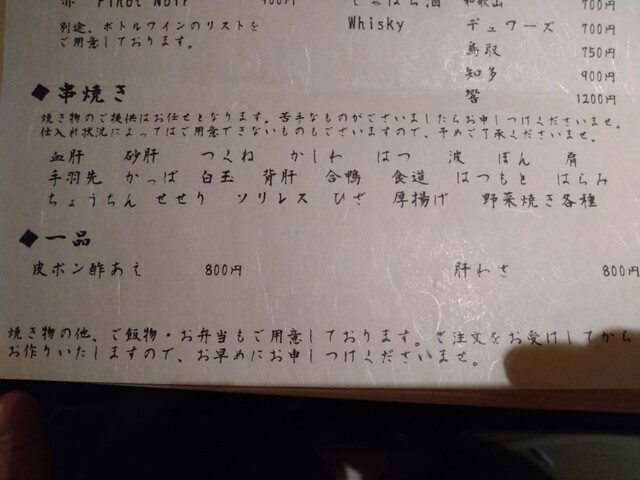 赤 Pinot Noir 900円
別途、ボトルワインのリストを
ご用意しております。
和歌山 700円
Whisky デュワーズ 700円
鳥取 750円
知多 900円
響 1200円
◆串焼き
焼き物のご提供はお任せとなります。苦手なものがございましたらお申しつけくださいませ。
仕入れ状況によってはご用意できないものもございますので、予めご了承くださいませ。
血肝 砂肝 つくね かしわ はつ 波 ぼん 肩
手羽先 かっぱ 白玉 背肝 合鴨 食道 はつもと はらみ
ちょうちん せせり ソリレス ひざ 厚揚げ 野菜焼き各種
◆一品
皮ポン酢あえ 800円 肝わさ 800円
焼き物の他、ご飯物・お弁当もご用意しております。ご注文をお受けしてから
お作りいたしますので、お早めにお申しつけくださいませ。